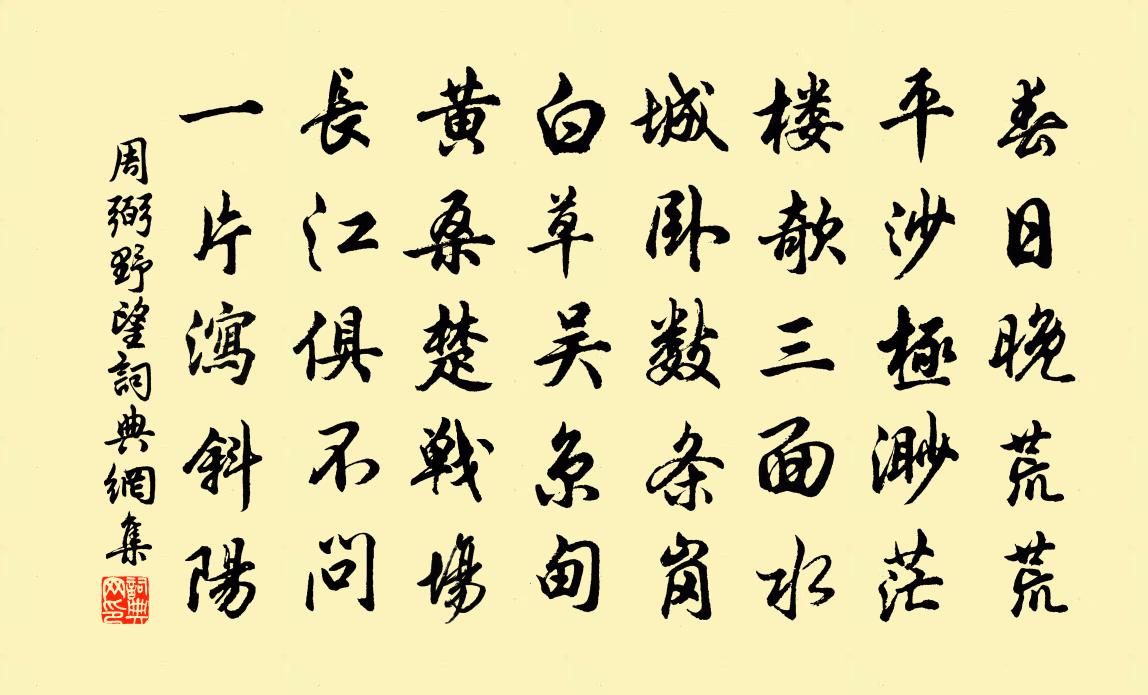 春日晚荒荒
平沙極渺茫
楼欹三面水
城卧数条岗
白草吴京甸
黄桑楚戦場
長江俱不问
一片瀉斜陽
周弼野望詞典網集
詞典网印